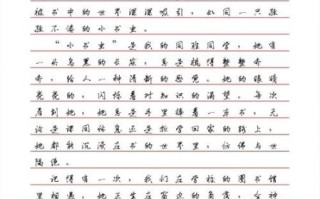 被书中的世界深深吸引，如同一只孜
孜不倦的小书虫。
“小书虫”是我的同班同学，她有
一头乌黑的长发，总是梳得整整齐
齐，给人一种清新的感觉。她的眼睛
亮亮的，闪烁着对知识的渴望。每次
看到她，她总是手里捧着一本书，无
论是课间休息还是放学回家的路上，
她都能沉浸在书的世界里，仿佛与世
隔绝。
记得有一次，我们在学校的图书馆
里相遇，她正坐在窗边的角落，全神